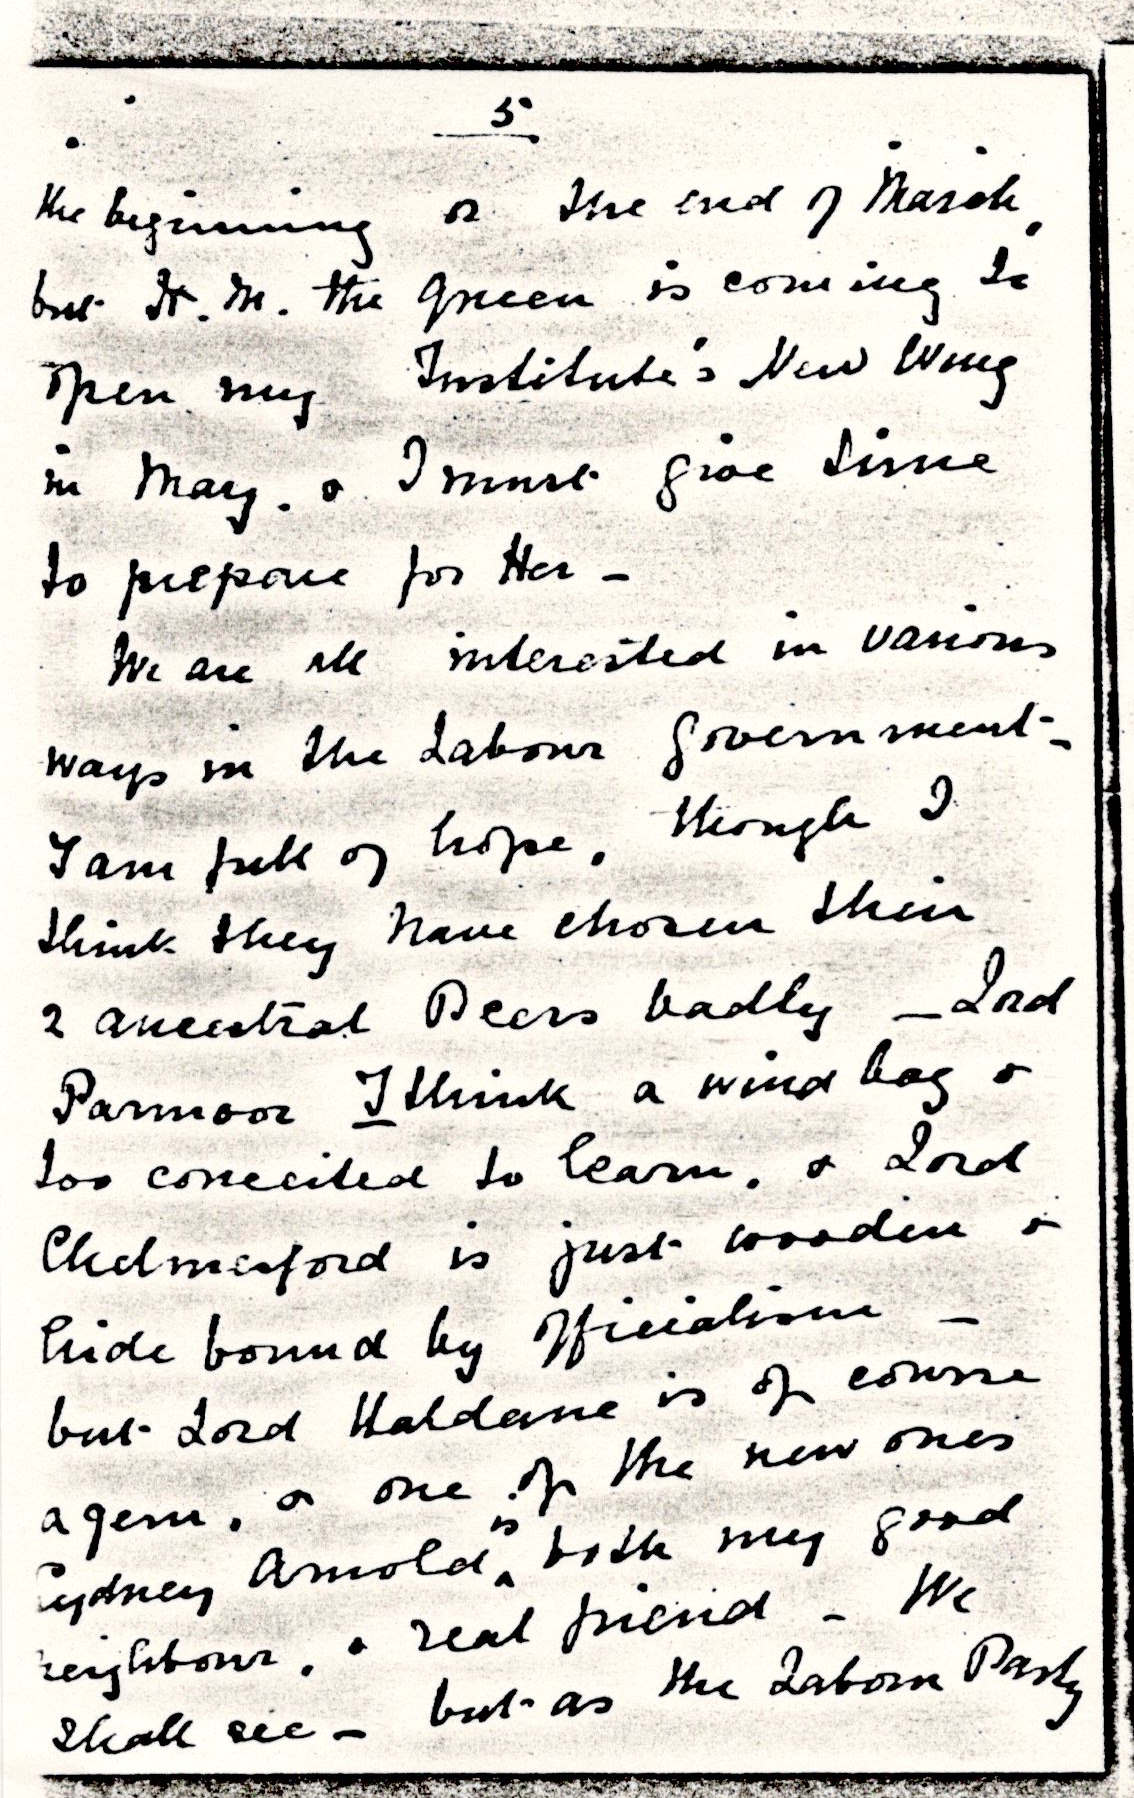 5
the beginning or the end of March,
but H. M. the Queen is coming to
open my Institute's New Wing
in May. & I must give time
to prepare for Her –
We are all interested in various
ways in the Labour government –
I am full of hope, though I
think they have chosen their
2 ancestral Peers badly – Lord
Parmoor I think a wind bag &
too conceited to learn, & Lord
Chelmsford is just wooden &
hide bound by officialism –
but Lord Haldane is of course
a gem, & one of the new ones
Sydney Arnold is both my good
neighbour, & real friend – We
shall see – but as the Labour Party